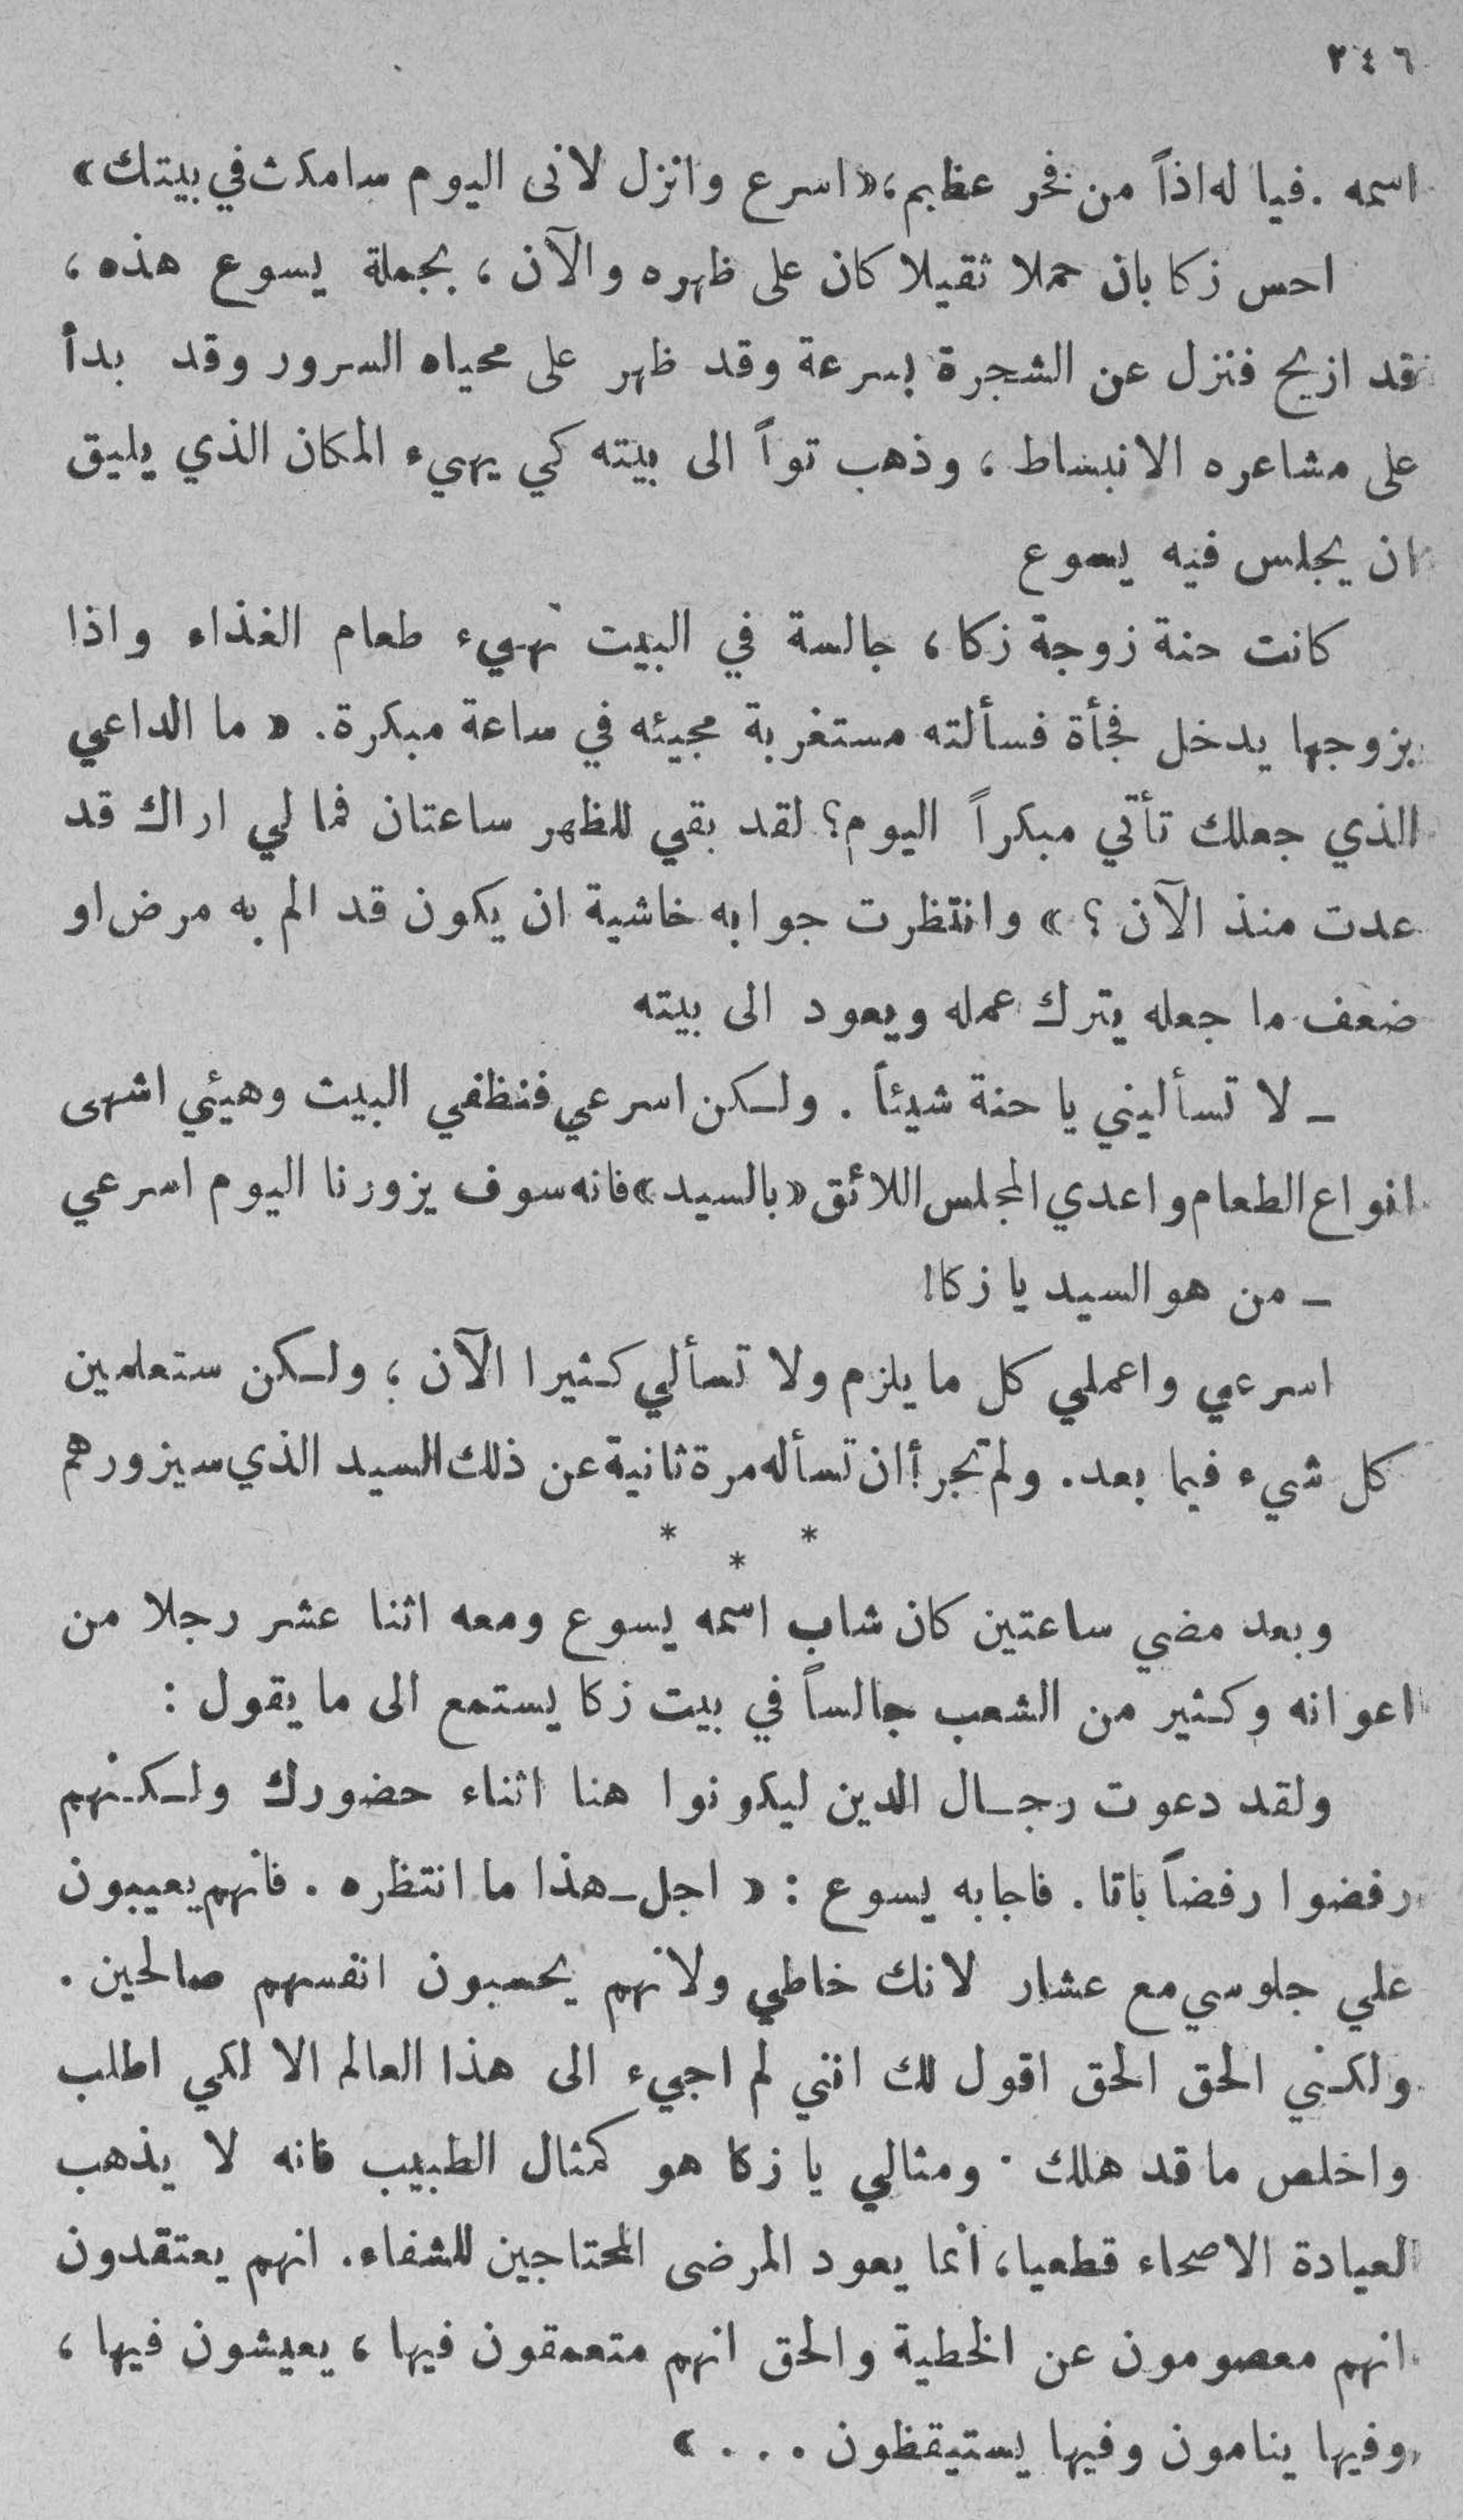 ٢٤٦
اسمه . فيا له اذاً من فخر عظيم ، «اسرع وانزل لانى اليوم سامكث في بيتك»
احس زكا بان حملا ثقيلا كان على ظهره والآن ، بجملة يسوع هذه ،
قد ازيح فنزل عن الشجرة بسرعة وقد ظهر على محياه السرور وقد بدأ
على مشاعره الانبساط ، وذهب تواً الى بيته كي يهيء المكان الذي يليق
ان يجلس فيه يسوع
كانت حنة زوجة زكا ، جالسة في البيت تهيء طعام الغذاء واذا
بزوجها يدخل فجأة فسألته مستغربة مجيئه في ساعة مبكرة . « ما الداعي
الذي جعلك تأتي مبكراً اليوم؟ لقد بقي للظهر ساعتان فما لي اراك قد
عدت منذ الآن ؟ » وانتظرت جوابه خاشية ان يكون قد الم به مرض او
ضعف ما جعله يترك عمله ويعود الى بيته
ـ لا تسأليني يا حنة شيئاً . ولـكن اسرعي فنظفي البيت وهيئي اشهى
انواع الطعام واعدي المجلس اللائق «بالسيد» فانه سوف يزورنا اليوم اسرعي
ـ من هو السيد يا زكا!
اسرعي واعملي كل ما يلزم ولا تسألي كـثيرا الآن ؛ ولـكن ستعلمين
كل شيء فيما بعد . ولم تجرأ ان تسأله مرة ثانية عن ذلك السيد الذي سيزورهم
* * *
وبعد مضي ساعتين كان شاب اسمه يسوع ومعه اثنا عشر رجلا من
اعوانه وكـثير من الشعب جالساً في بيت زكا يستمع الى ما يقول :
ولقد دعوت رجـال الدين ليكونوا هنا اثناء حضورك ولـكـنهم
رفضوا رفضاً باتا . فاجابه يسوع : « اجل ـ هذا ما انتظره . فانهم يعيبون
علي جلوسي مع عشار لانك خاطي ولانهم يحسبون انفسهم صالحين .
ولكـني الحق الحق اقول لك انني لم اجيء الى هذا العالم الا لكي اطلب
واخلص ما قد هلك . ومثالي يا زكا هو كمثال الطبيب فانه لا يذهب
لعيادة الاصحاء قطعيا ، انما يعود المرضى المحتاجين للشفاء . انهم يعتقدون
انهم معصومون عن الخطية والحق انهم متعمقون فيها ، يعيشون فيها ،
وفيها ينامون وفيها يستيقظون . . . »